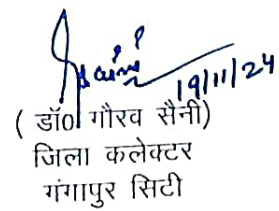 19/11/24
( डॉ0 गौरव सैनी)
जिला कलेक्टर
गंगापुर सिटी